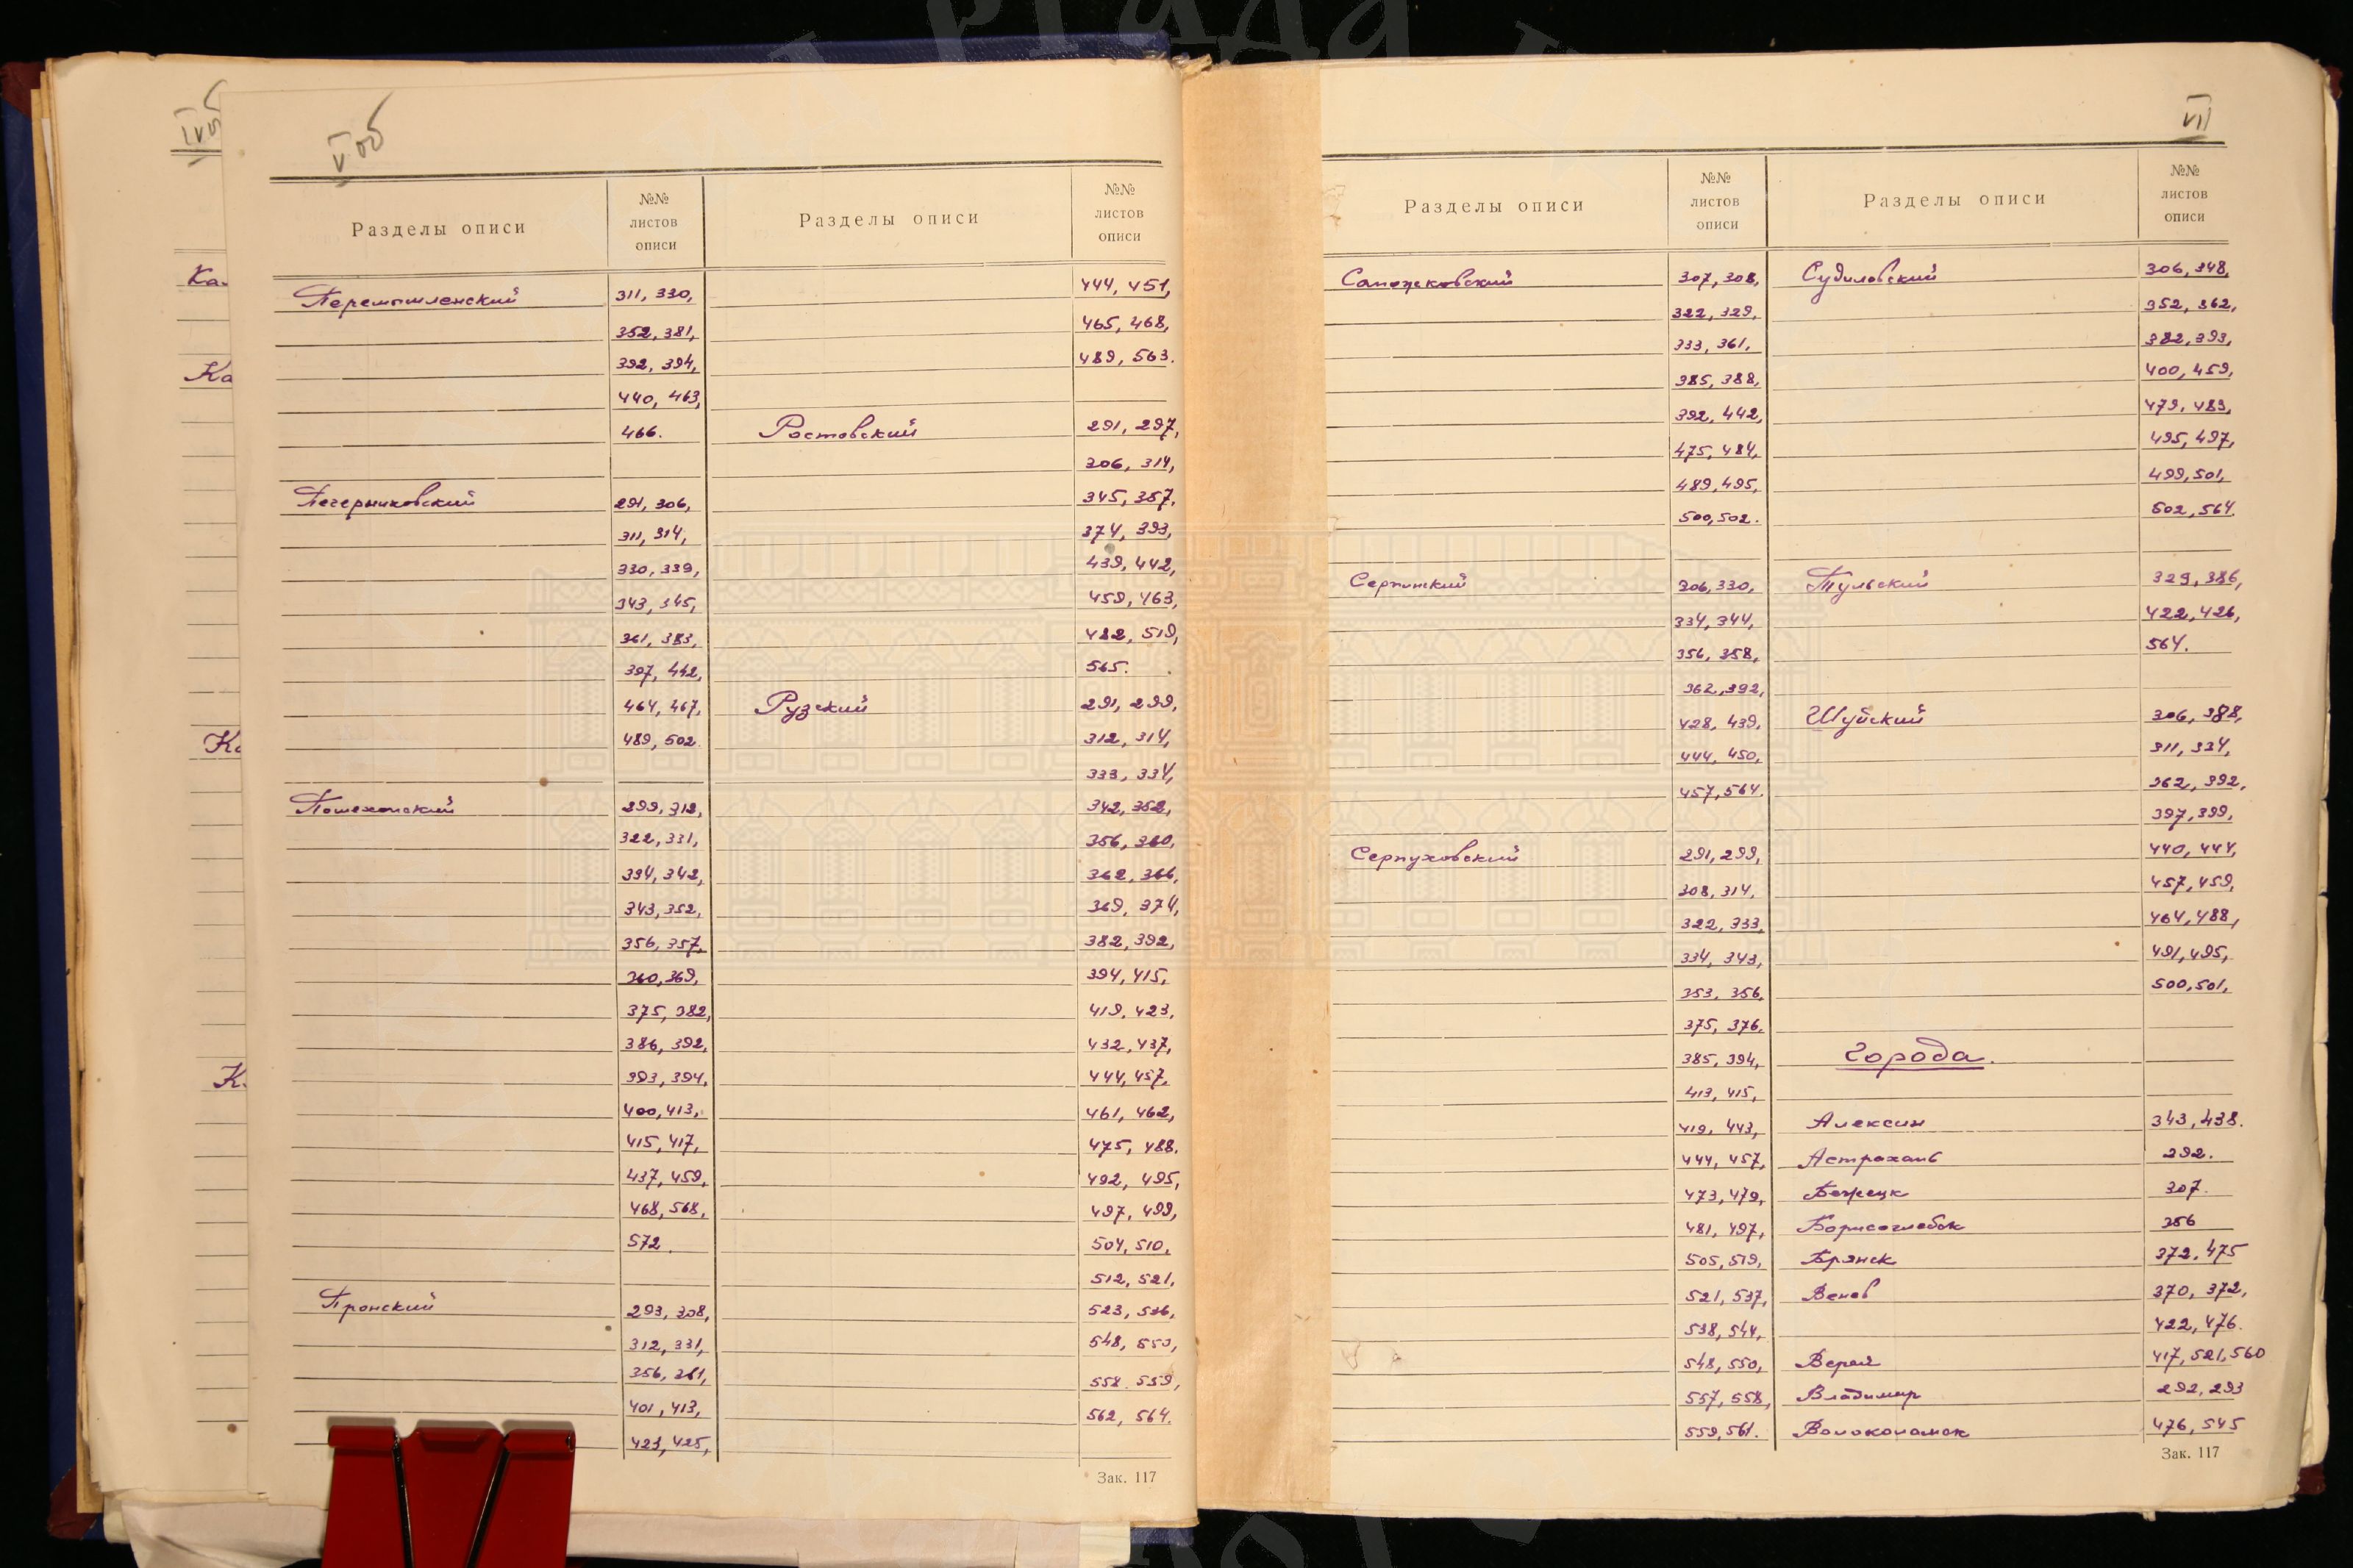 IVоб
Vоб
Разделы описи
№№
листов
описи
Разделы описи
№№
листов
описи
Ка
Ка
Перемышленский
311, 330,
352, 381,
392, 394,
440, 463,
466.
Печерниковский
291, 306,
311, 314,
330, 339,
343, 345,
361, 383,
397, 442,
464, 467,
489, 502.
Пошехонский
299, 312,
322, 331,
334, 342,
343, 352,
356, 357,
360, 369,
375, 382,
386, 392,
393, 394,
400, 413,
415, 417,
437, 459,
468, 568,
572.
Пронский
293, 308,
312, 331,
356, 361,
401, 413,
423, 425,
444, 451,
465, 468,
489, 563.
Ростовский
291, 297,
306, 314,
345, 357,
374, 393,
439, 442,
459, 463,
482, 519,
565.
Рузский
291, 299,
312, 314,
333, 334,
342, 352,
356, 360,
362, 366,
369, 374,
382, 392,
394, 415,
419, 423,
432, 437,
444, 457,
461, 462,
475, 488.
492, 495,
497, 499,
504, 510,
512, 521,
523, 536,
548, 550,
558. 559,
562, 564.
Зак. 117
VII
Разделы описи
№№
листов
описи
Разделы описи
№№
листов
описи
Сапожковский
307, 308,
322, 329,
333, 361,
385, 388,
392, 442,
475, 484,
489, 495,
500, 502.
Серпинский
306, 330,
334, 344,
356, 358,
362, 392,
428, 439,
444, 450,
457, 564.
Серпуховский
291, 299,
308, 314,
322, 333,
334, 343,
353, 356,
375, 376,
385, 394,
413, 415,
419, 443,
444, 457,
473, 479,
481, 497,
505, 519,
521, 537,
538, 544,
548, 550,
557, 558,
559, 561.
Судиловский
306, 348,
352, 362,
382, 393,
400, 459,
479, 489,
495, 497,
499, 501,
502, 564.
Тульский
329, 386,
422, 426,
564.
Шуйский
306, 388,
311, 334,
362, 392,
397, 399,
440, 444,
457, 459,
464, 488,
491, 495,
500, 501,
Города.
Алексин 343, 438.
Астрахань 292.
Бежецк 307.
Борисоглебск 356
Брянск 372, 475
Венев 370, 372,
422, 476.
Верея 417, 521, 560
Владимир 292, 293
Волоколамск 476, 545
Зак. 117